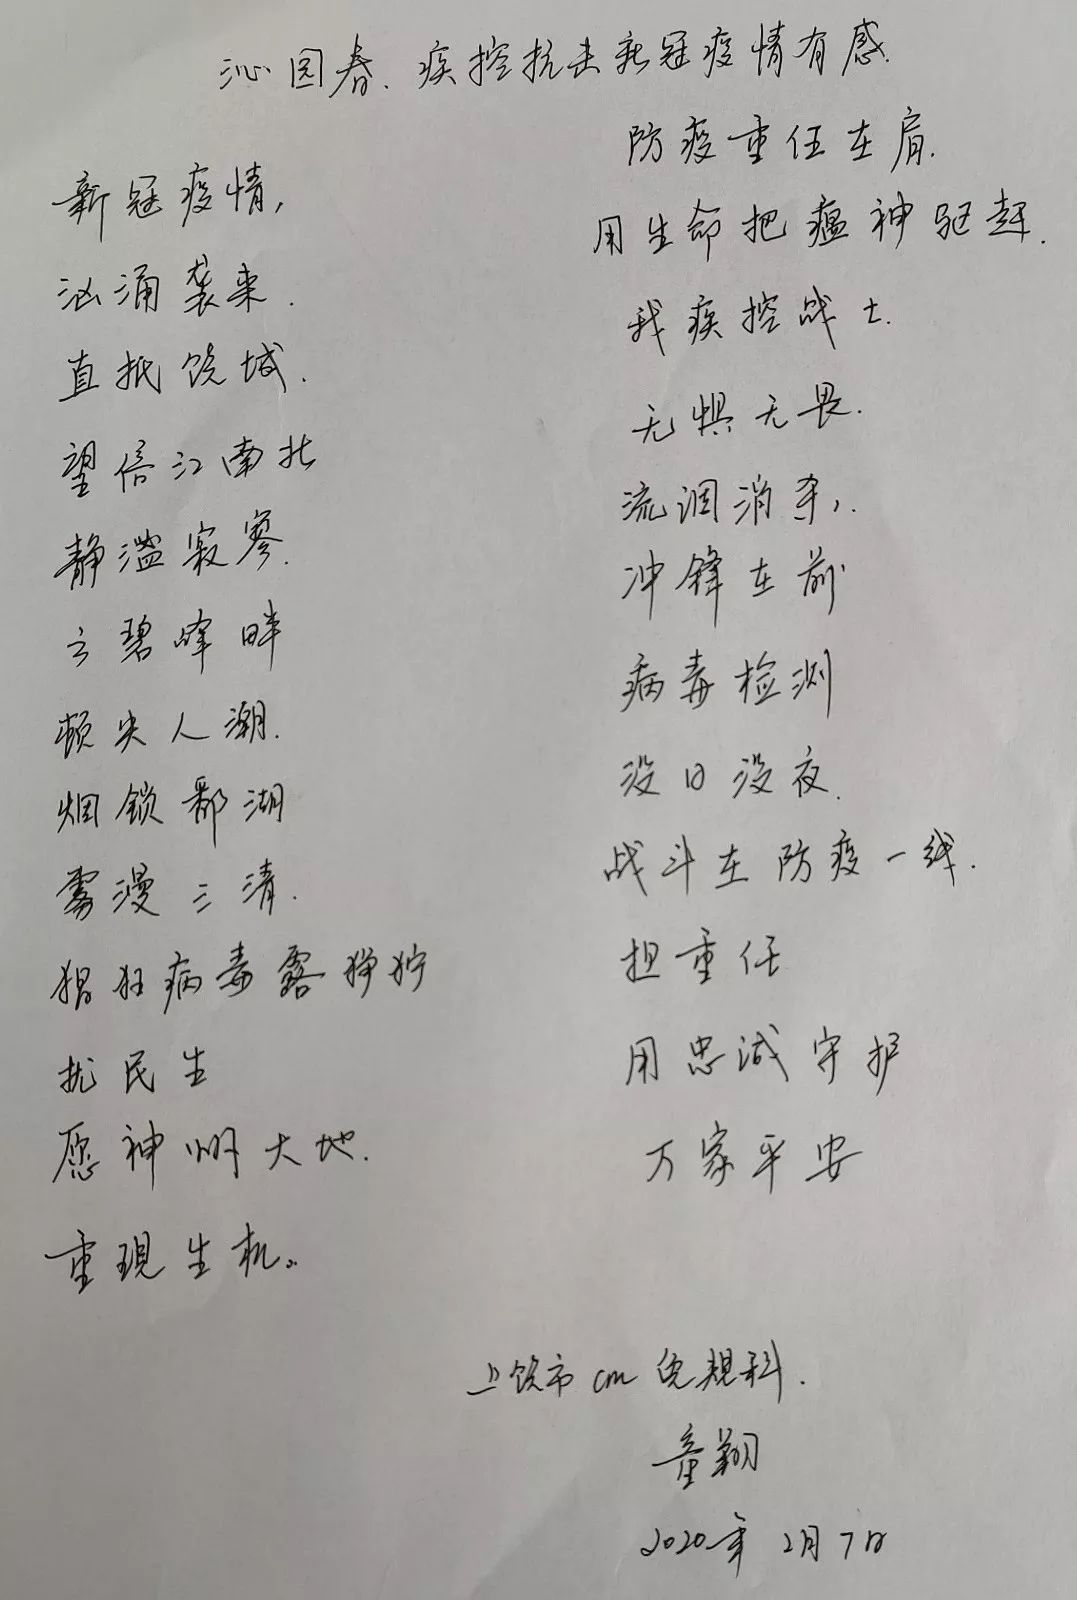 沁园春.疾控抗击新冠疫情有感.
新冠疫情,
汹涌袭来.
直抵饶城.
望信江南北
静溢寂寥.
云碧峰畔
顿失人潮.
烟锁鄱湖
雾漫三清.
猖狂病毒露狰狞
扰民生
愿神州大地.
重现生机。
防疫重任在肩.
用生命把瘟神驱赶.
我疾控战士.
无惧无畏.
流调消杀,.
冲锋在前
病毒检测
没日没夜.
战斗在防疫一线.
担重任
用忠诚守护
万家平安
上饶市 免规科.
童翔
2020年2月7日